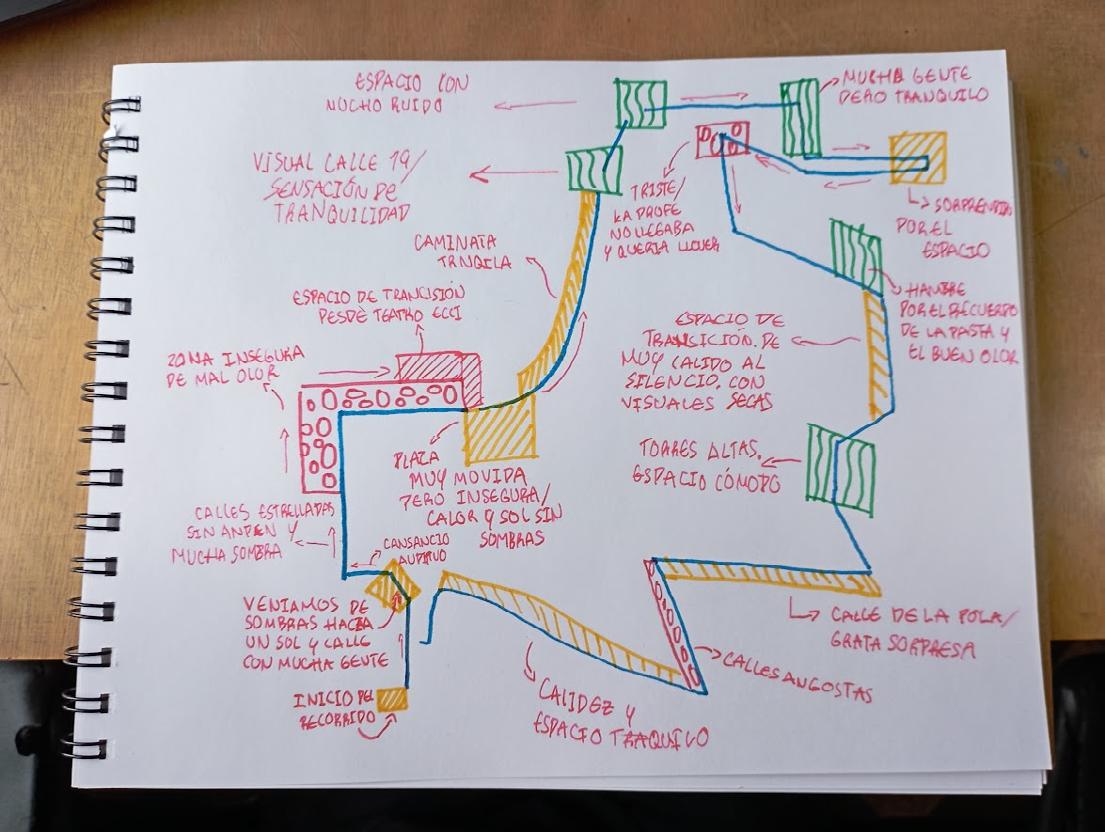 ESPACIO CON
MUCHO RUIDO
MUCHA GENTE
PERO TRANQUILO
VISUAL CALLE 19/
SENSACIÓN DE
TRANQUILIDAD
TRISTE/
LA PROFE
NO LLEGABA
Y QUERIA LLOVER
SORPRENDIDO
POR EL
ESPACIO
CAMINATA
TRNQILA
ESPACIO DE TRANCISIÓN
DESDE TEATRO ECCI
HAMBRE
POR EL RECUERDO
DE LA PASTA Y
EL BUEN OLOR
ESPACIO DE
TRANSICIÓN. DE
MUY CALIDO AL
SILENCIO. CON
VISUALES SECAS
ZONA INSEGURA
DE MAL OLOR
PLAZA
MUY MOVIDA
PERO INSEGURA/
CALOR Y SOL SIN
SOMBRAS
TORRES ALTAS.
ESPACIO CÓMODO
CALLES ESTRELLADAS
SIN ANDEN Y
MUCHA SOMBRA
CANSANCIO
AUDITIVO
VENIAMOS DE
SOMBRAS HACIA
UN SOL Y CALLE
CON MUCHA GENTE
INICIO DEL
RECORRIDO
CALLE DE LA POLA/
GRATA SORPRESA
CALLES ANGOSTAS
CALIDEZ Y
ESPACIO TRAQUILO